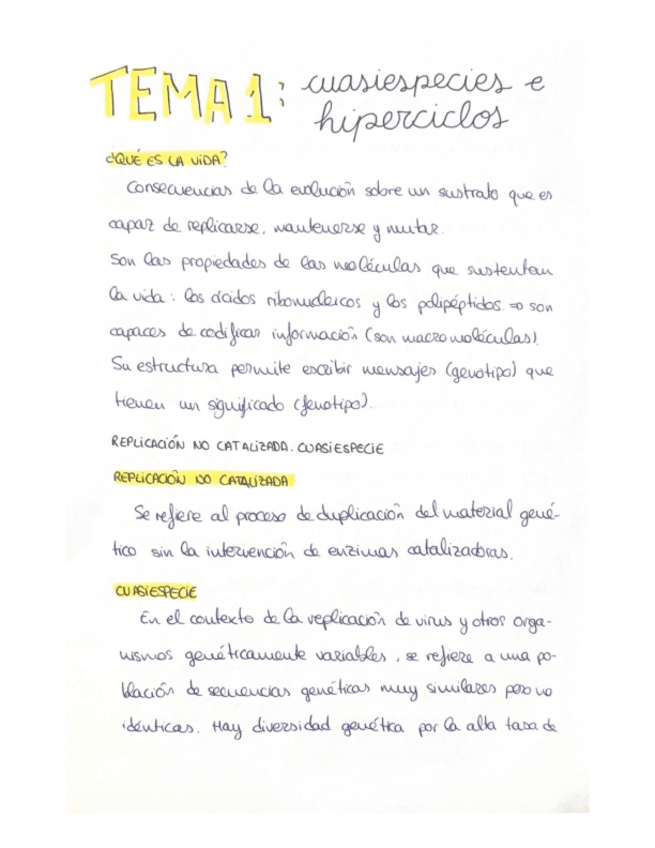 TEMA 1: cuasiespecies e
hiperciclos
¿QUÉ ES LA VIDA?
Consecuencias de la evolución sobre un sustrato que es
capaz de replicarse, mantenerse y mutar.
Son las propiedades de las moléculas que sustentan
la vida: los ácidos ribonucleicos y los polipéptidos. ⇒ son
capaces de codificar información (son macromoléculas).
Su estructura permite escribir mensajes (genotipo) que
tienen un significado (fenotipo).
REPLICACIÓN NO CATALIZADA. CUASIESPECIE
REPLICACIÓN NO CATALIZADA
Se refiere al proceso de duplicación del material gené-
tico sin la intervención de enzimas catalizadoras.
CUASIESPECIE
En el contexto de la replicación de virus y otros orga-
nismos genéticamente variables, se refiere a una po-
blación de secuencias genéticas muy similares pero no
idénticas. Hay diversidad genética por la alta tasa de